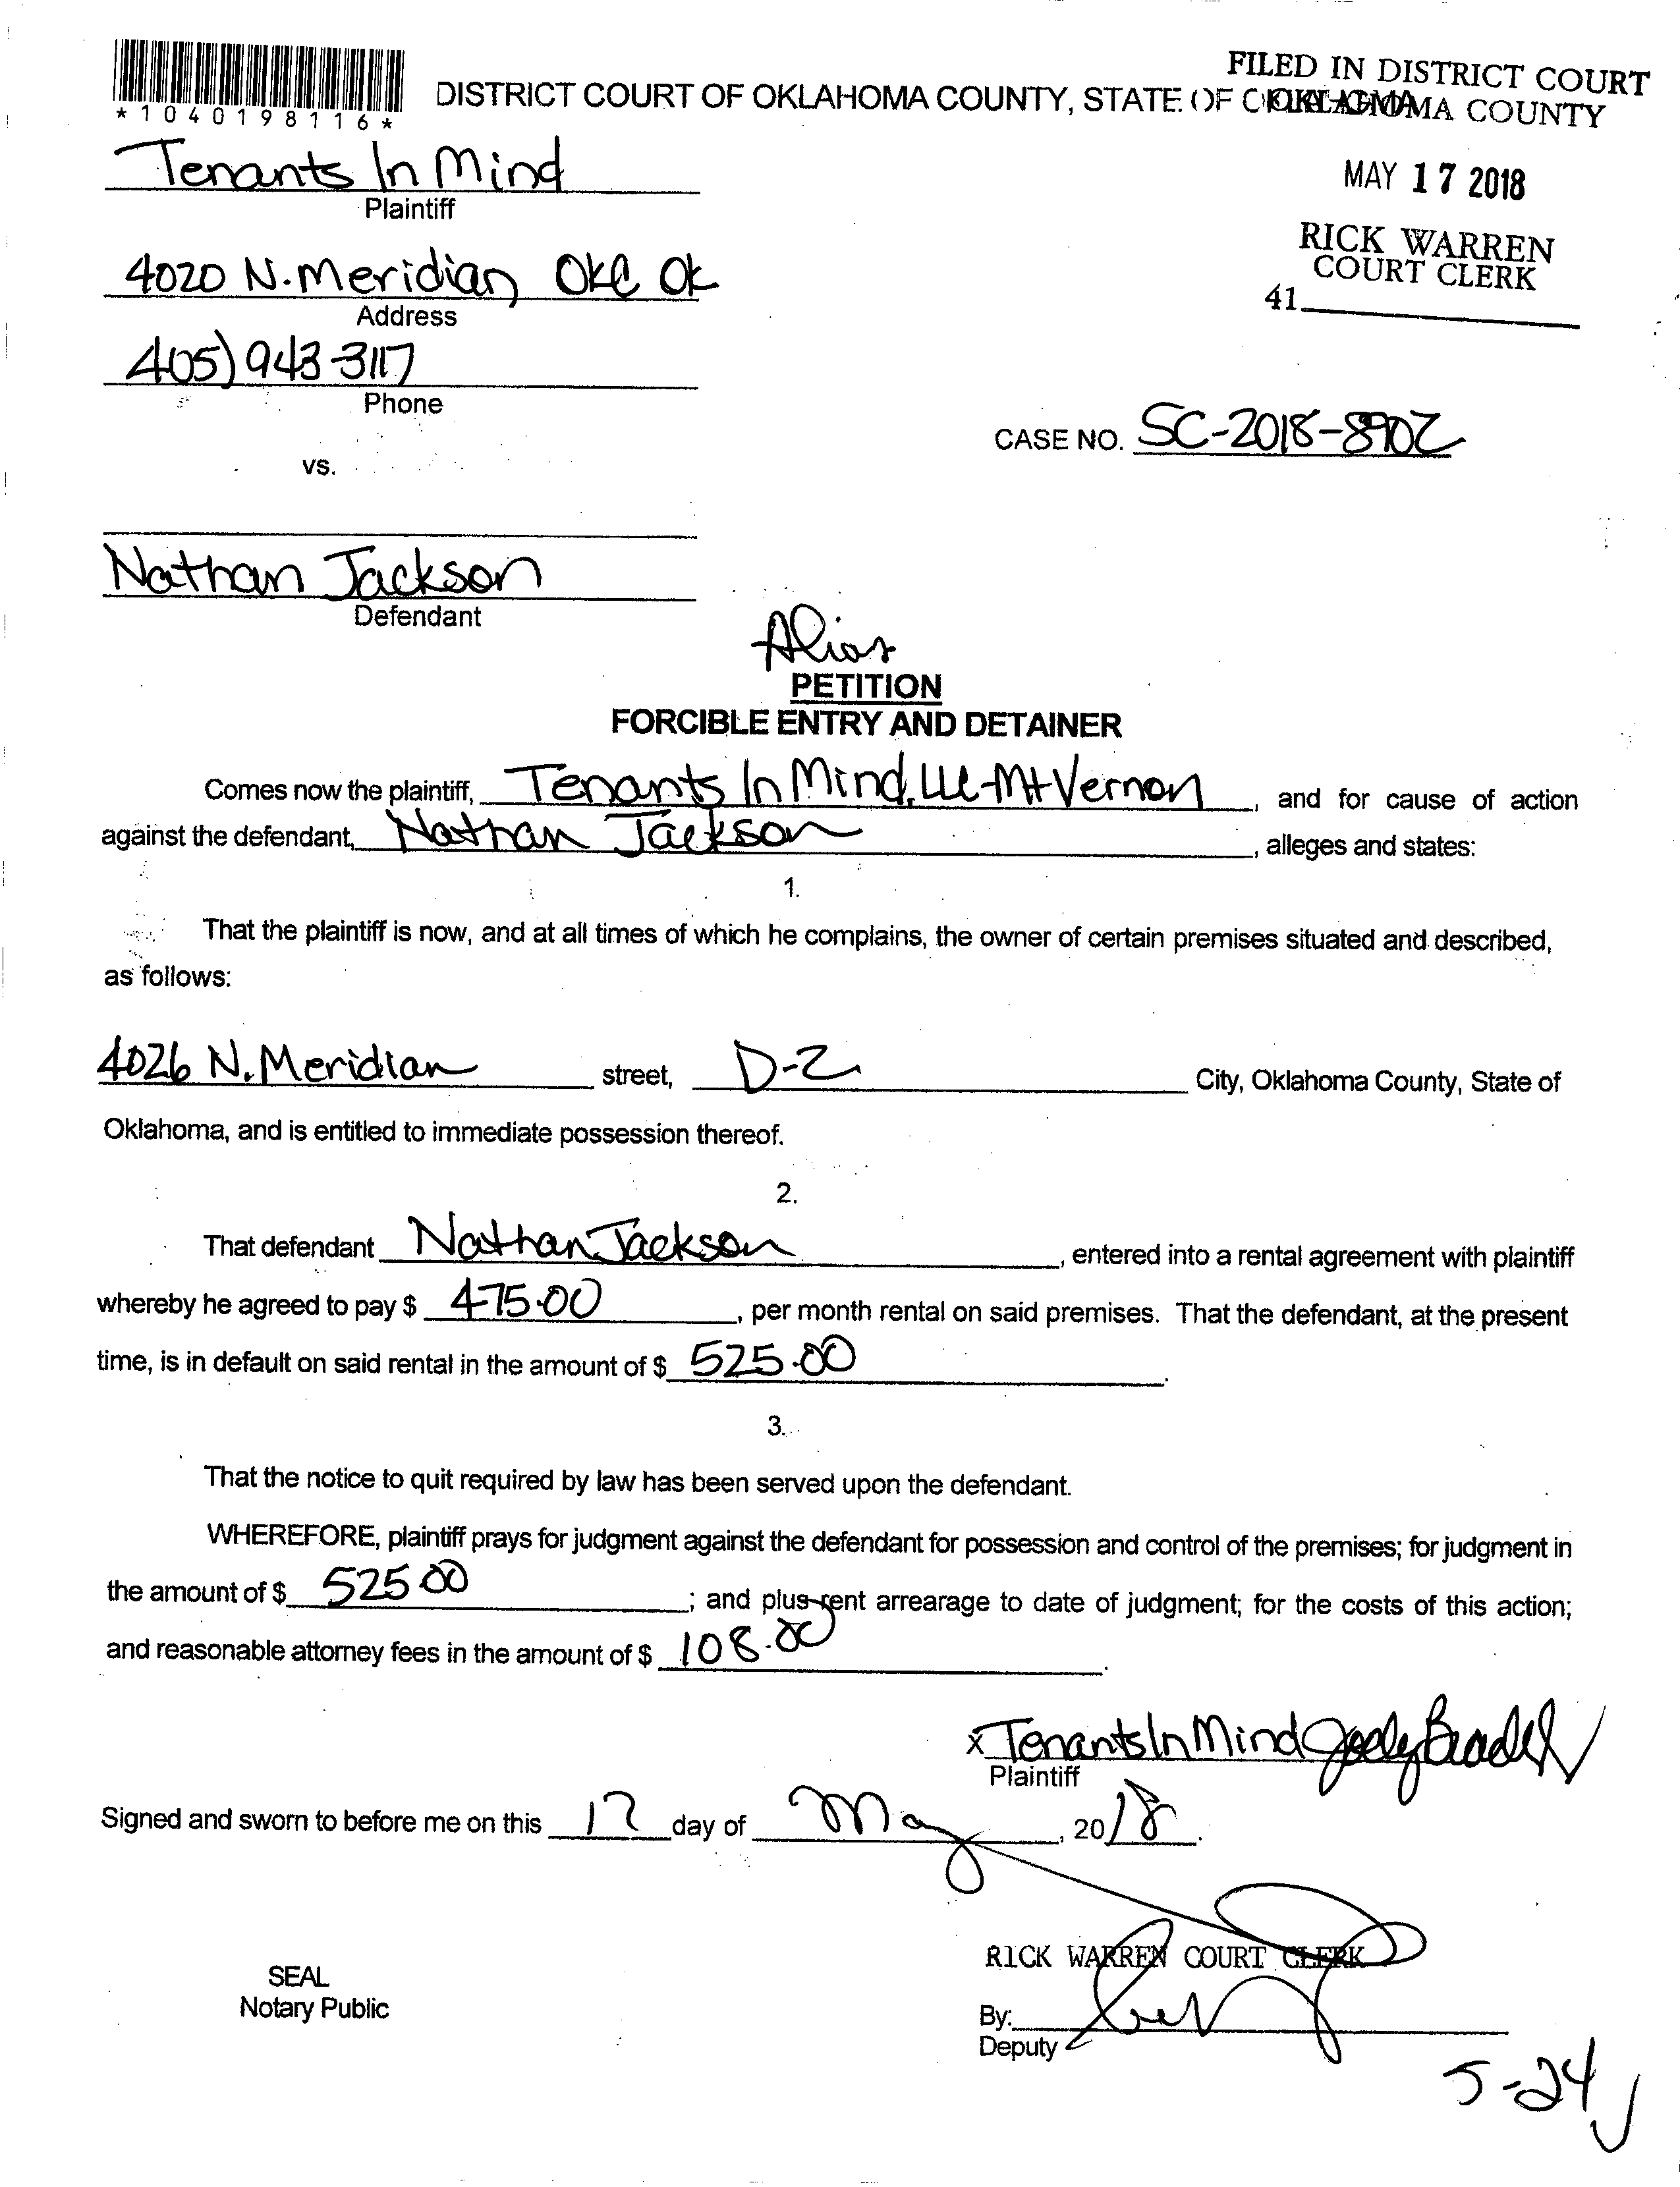 FILED IN DISTRICT COURT
OKLAHOMA COUNTY
*1040198116*
DISTRICT COURT OF OKLAHOMA COUNTY, STATE OF
Tenants In Mind
Plaintiff
MAY 17 2018
RICK WARREN
COURT CLERK
41
4020 N. Meridian OKC OK
Address
405) 943-3117
Phone
CASE NO. SC-2018-8902
vs.
Nathan Jackson
Defendant
Alias
PETITION
FORCIBLE ENTRY AND DETAINER
Comes now the plaintiff, Tenants In Mind, LLC-Mt Vernon, and for cause of action
against the defendant, Nathan Jackson, alleges and states:
1.
That the plaintiff is now, and at all times of which he complains, the owner of certain premises situated and described,
as follows:
4026 N. Meridian street, D-2 City, Oklahoma County, State of
Oklahoma, and is entitled to immediate possession thereof.
2.
That defendant Nathan Jackson, entered into a rental agreement with plaintiff
whereby he agreed to pay $ 475.00, per month rental on said premises. That the defendant, at the present
time, is in default on said rental in the amount of $ 525.00.
3.
That the notice to quit required by law has been served upon the defendant.
WHEREFORE, plaintiff prays for judgment against the defendant for possession and control of the premises; for judgment in
the amount of $ 525.00; and plus rent arrearage to date of judgment; for the costs of this action;
and reasonable attorney fees in the amount of $ 108.00.
x Tenants In Mind
Plaintiff
Signed and sworn to before me on this 17 day of May, 2018.
RICK WARREN COURT CLERK
SEAL
Notary Public
By:
Deputy
5-24